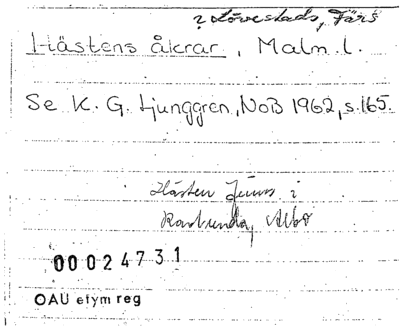 i Lövestads, Färs
Hästens åkrar, Malm. l.
Se K. G. Ljunggren, NoB 1962, s. 165.
Hästen finns i
Albo
00024731
OAU etym reg